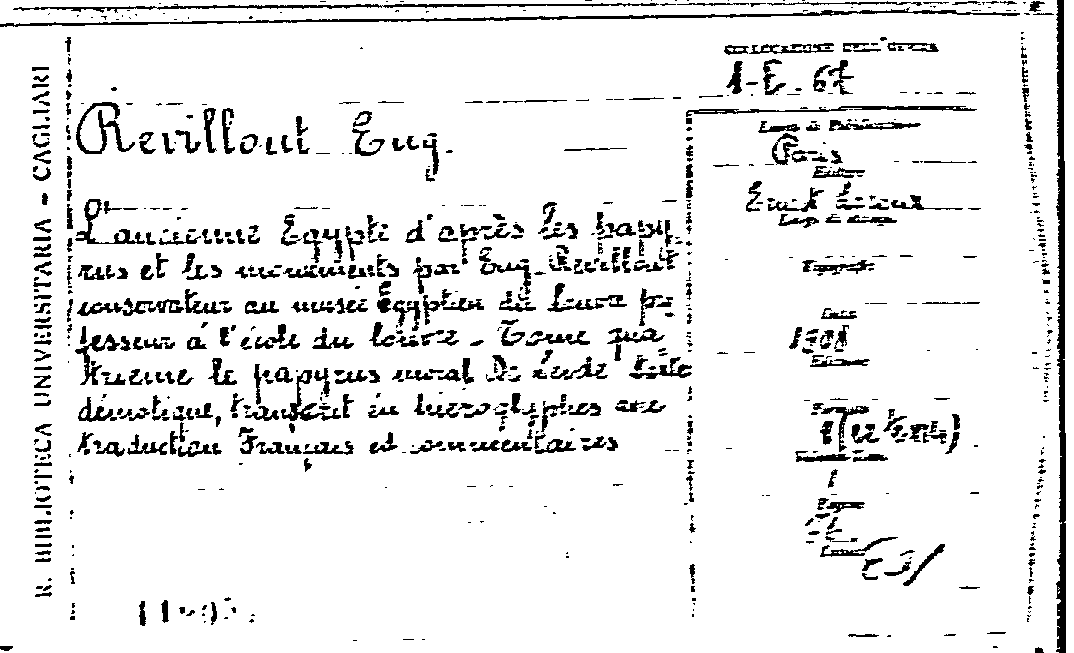 R. BIBLIOTECA UNIVERSITARIA - CAGLIARI
COLLOCAZIONE DELL'OPERA
1-E. 67
Revillout Eug.
L'ancienne Egypte d'après les papy
rus et les monuments par Eug. Revillout
conservateur au musée Egyptien du louvre pro
fesseur à l'école du louvre - Tome qua
trieme le papyrus moral De Leide texte
démotique, transcrit en hieroglyphes avec
traduction Français et commentaires
Luogo di Pubblicazione
Paris
Editore
Ernest Leroux
Luogo di stampa
Tipografo
Data
1908
Edizione
Formato
1
Pagine